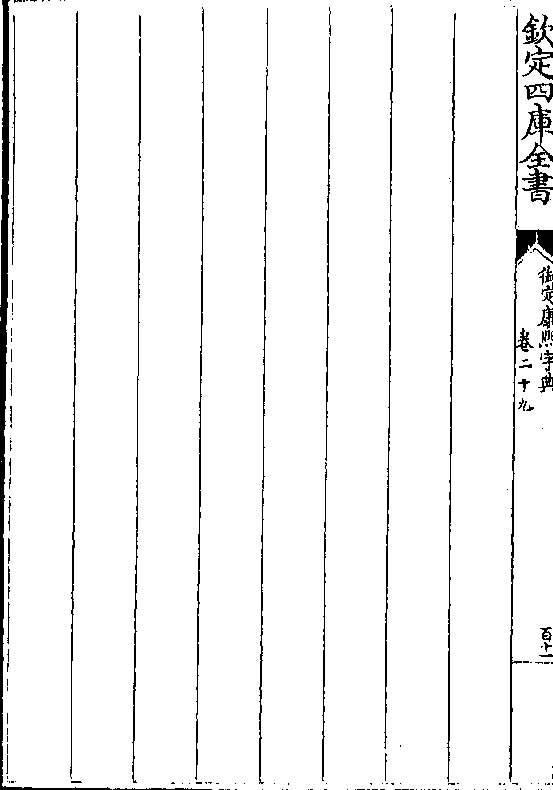 欽定四庫全書
御定康熙字典
卷二十九
百十一